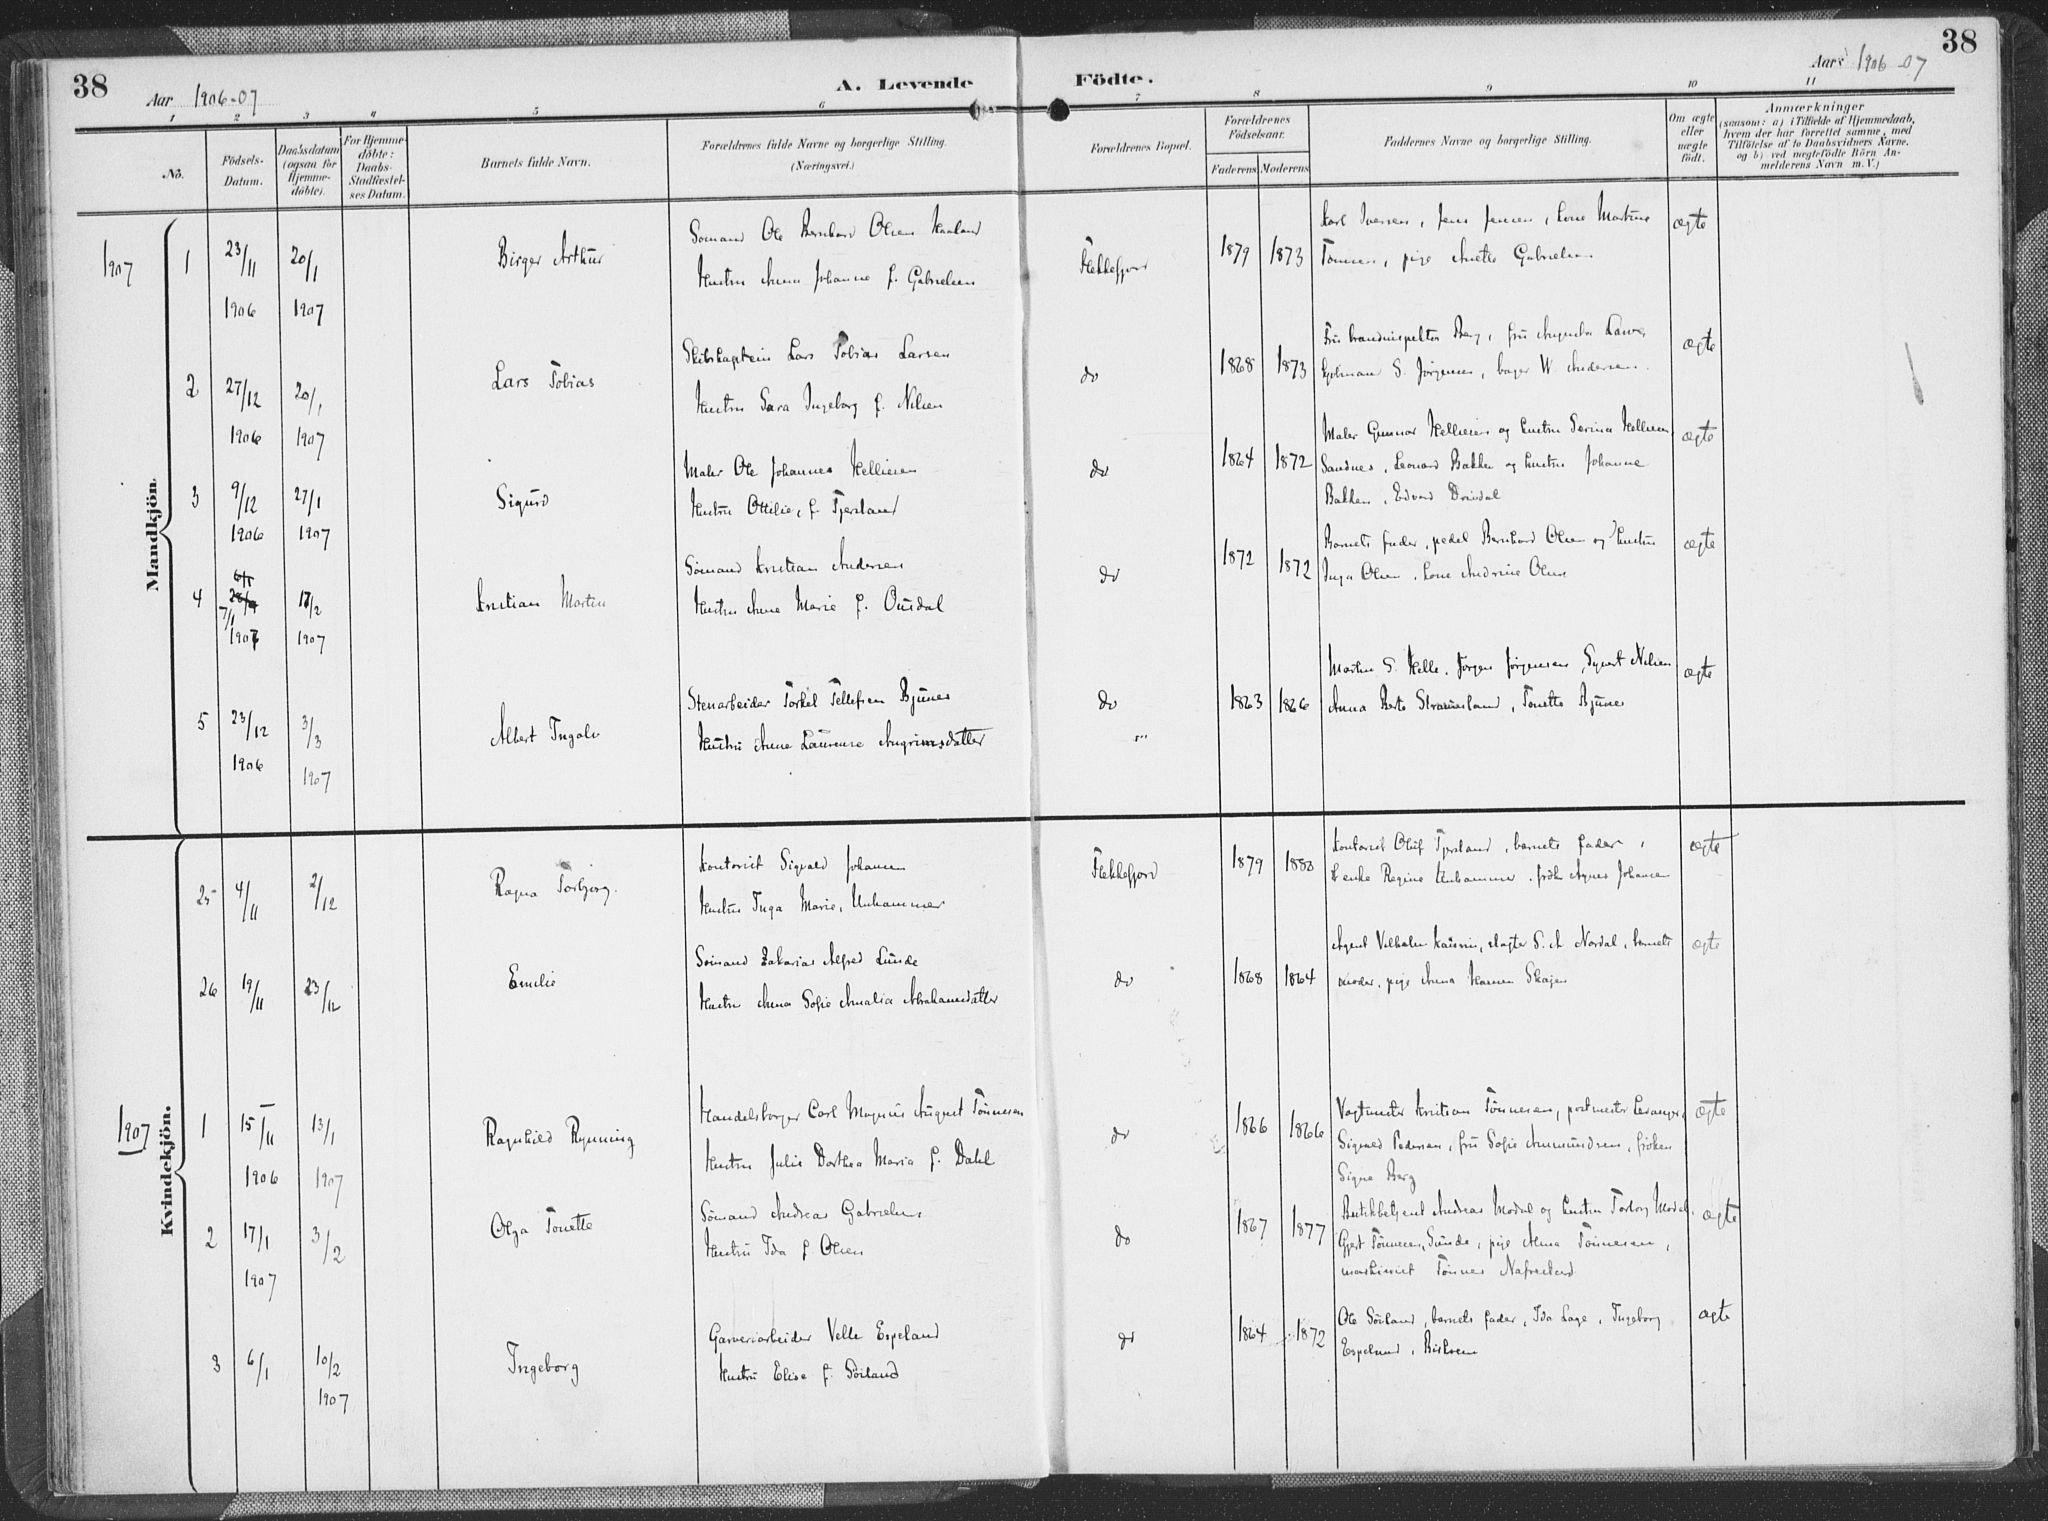 38
Aar 1906-07
A. Levende Födte.
Aar 1906-07
38
1 2 3 4 5 6 7 8 9 10 11
No.
Födsels-Datum.
Daabsdatum (ogsaa for Hjemmedöbte).
For Hjemmedöbte: Daabs-Stadfæstelses Datum.
Barnets fulde Navn.
Forældrenes fulde Navne og borgerlige Stilling. (Næringsvei.)
Forældrenes Bopæl.
Forældrenes Födselsaar.
Faderens Moderens
Faddernes Navne og borgerlige Stilling.
Om ægte eller uægte födt.
Anmærkninger
(saasom: a) i Tilfælde af Hjemmedaab, hvem der har forrettet samme, med Tilföielse af to Daabsvidners Navne, og b) ved uægtefödte Börn Anmelderens Navn m. V.)
Mandkjön.
1907
1 23/11 1906 20/1 1907 Birger Arthur
Sömand Ole Bernhard Olsen Haaland
Hustru Anna Johanne f. Gabrielsen
Flekkefjord 1879 1873
Karl Iversen, Jens Jensen, kone Martine
Tönnesen, pige Anette Gabrielsen
ægte
2 27/12 1906 20/1 1907 Lars Tobias
Skibskaptein Lars Tobias Larsen
Hustru Sara Ingeborg f. Nilsen
do 1868 1873
Fru brandinspektør Berg, fru Augusta
S. Jörgensen, bager W. Andersen.
ægte
3 9/12 1906 27/1 1907 Sigurd
Maler Ole Johannes Helliesen
Hustru Ottilie, f. Tjersland
do 1864 1872
Maler Gunnar Helliesen og hustru Serina Helliesen
Sandnes, Leonard Bakken og hustru Johanne
Bakken, Edvard
ægte
4 7/1 1907 17/2 1907 Kristian Martin
Sömand Kristian Andersen
Hustru Anne Marie f. Ousdal
do 1872 1872
Barnets fader, pedel Bernhard Olsen og hustru
Inga Olsen, kone Andrine Olsen
ægte
5 23/12 1906 3/3 1907 Albert Ingolv
Stenarbeider Torkel Tellefsen Bjunes
Hustru Anne Laurense Angrimsdatter
do 1863 1866
Martin S. Helle, Jörgen Jörgensen, Syvert Nilsen
Anna Berte, Tonette Bjunes
ægte
Kvindekjön.
25 4/11 2/12 Ragna Torbjørg.
Kontorist Sigvald Johansen
Hustru Inga Marie, Unhammer
Flekkefjord 1879 1880
Kontorist Oluf Tjersland, barnets fader,
enke Regine Unhammer, frök. Agnes Johansen
ægte
26 19/11 23/12 Emilie
Sömand Zakarias Alfred Lunde
Hustru Anna Sofie Amalia Abrahamsdatter
do 1868 1864
Agent Vilhelm, slagter S. A. Nordal, barnets
moder, pige Anna Skajen
ægte
1907
1 15/11 1906 13/1 1907 Ragnhild Rynning
Handelsborger Carl Magnus August Tönnesen
Hustru Julie Dorthea Maria f. Dahl
do 1866 1866
Vagtmester Kristian Tönnesen, postmester
Sigvald Pedersen, fru Sofie Ammundsen, fröken
Signe Berg
ægte
2 17/1 1907 3/2 Olga Tonette
Sömand Andreas Gabrielsen
Hustru Ida f. Olsen
do 1867 1877
Butikbetjent Andreas Modal og hustru Torborg Modal,
Gjert Tönnesen, Sunde, pige Alma Tönnesen,
maskinist Tönnes
ægte
3 6/1 10/2 1907 Ingeborg
Garveriarbeider Velle Espeland
Hustru Elise f. Söiland
do 1864 1872
Ole Söiland, barnets fader, Ida Lage, Ingeborg
Espeland,
ægte